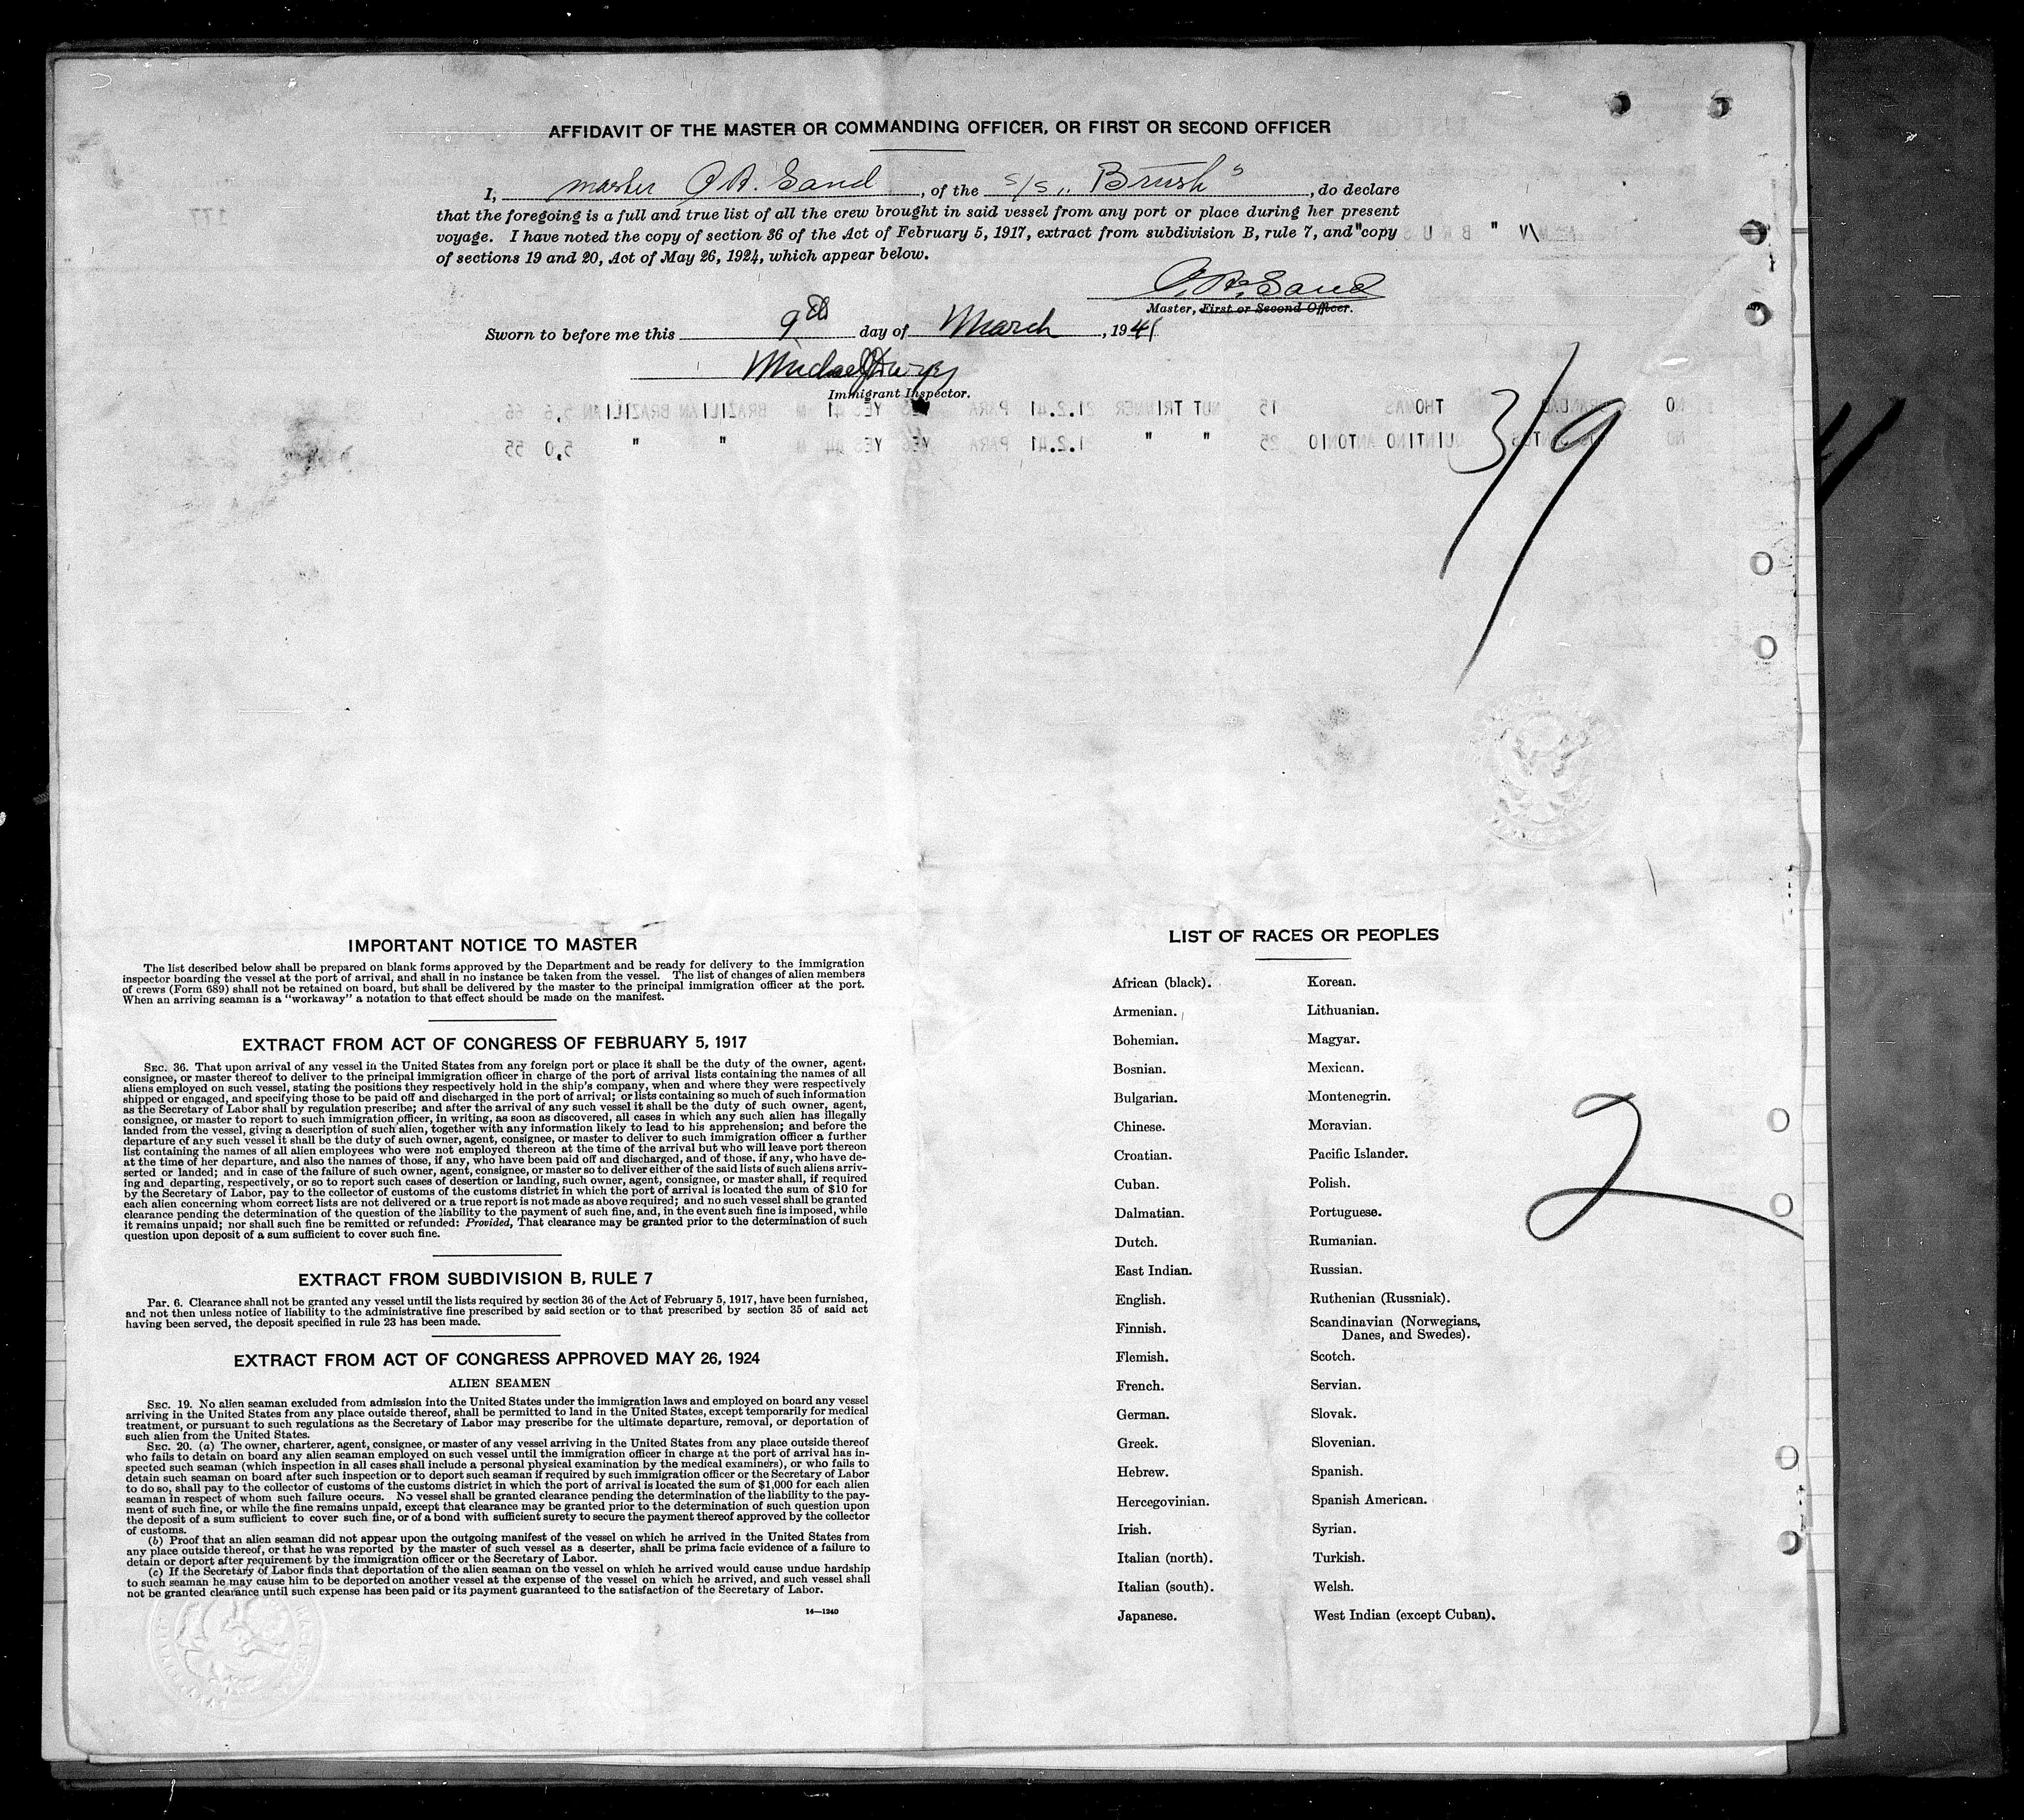 AFFIDAVIT OF THE MASTER OR COMMANDING OFFICER, OR FIRST OR SECOND OFFICER
I, master A. Sand, of the s/s „Brush", do declare
that the foregoing is a full and true list of all the crew brought in said vessel from any port or place during her present
voyage. I have noted the copy of section 36 of the Act of February 5, 1917, extract from subdivision B, rule 7, and copy
of sections 19 and 20, Act of May 26, 1924, which appear below.
A. Sand
Master, First or Second Officer.
Sworn to before me this 9th day of March, 1941
Michael
Immigrant Inspector.
NO THOMAS 15 NUT TRIMMER 21.2.41 PARA YES YES 41 M BRAZILIAN BRAZILIAN 5,6 66
NO QUINTINO ANTONIO 25 " " 1.2.41 PARA YES YES 44 M " " 5,0 55
177
3/9
IMPORTANT NOTICE TO MASTER
The list described below shall be prepared on blank forms approved by the Department and be ready for delivery to the immigration
inspector boarding the vessel at the port of arrival, and shall in no instance be taken from the vessel. The list of changes of alien members
of crews (Form 689) shall not be retained on board, but shall be delivered by the master to the principal immigration officer at the port.
When an arriving seaman is a "workaway" a notation to that effect should be made on the manifest.
EXTRACT FROM ACT OF CONGRESS OF FEBRUARY 5, 1917
SEC. 36. That upon arrival of any vessel in the United States from any foreign port or place it shall be the duty of the owner, agent,
consignee, or master thereof to deliver to the principal immigration officer in charge of the port of arrival lists containing the names of all
aliens employed on such vessel, stating the positions they respectively hold in the ship's company, when and where they were respectively
shipped or engaged, and specifying those to be paid off and discharged in the port of arrival; or lists containing so much of such information
as the Secretary of Labor shall by regulation prescribe; and after the arrival of any such vessel it shall be the duty of such owner, agent,
consignee, or master to report to such immigration officer, in writing, as soon as discovered, all cases in which any such alien has illegally
landed from the vessel, giving a description of such alien, together with any information likely to lead to his apprehension; and before the
departure of any such vessel it shall be the duty of such owner, agent, consignee, or master to deliver to such immigration officer a further
list containing the names of all alien employees who were not employed thereon at the time of the arrival but who will leave port thereon
at the time of her departure, and also the names of those, if any, who have been paid off and discharged, and of those, if any, who have de-
serted or landed; and in case of the failure of such owner, agent, consignee, or master so to deliver either of the said lists of such aliens arriv-
ing and departing, respectively, or so to report such cases of desertion or landing, such owner, agent, consignee, or master shall, if required
by the Secretary of Labor, pay to the collector of customs of the customs district in which the port of arrival is located the sum of $10 for
each alien concerning whom correct lists are not delivered or a true report is not made as above required; and no such vessel shall be granted
clearance pending the determination of the question of the liability to the payment of such fine, and, in the event such fine is imposed, while
it remains unpaid; nor shall such fine be remitted or refunded: Provided, That clearance may be granted prior to the determination of such
question upon deposit of a sum sufficient to cover such fine.
EXTRACT FROM SUBDIVISION B, RULE 7
Par. 6. Clearance shall not be granted any vessel until the lists required by section 36 of the Act of February 5, 1917, have been furnished,
and not then unless notice of liability to the administrative fine prescribed by said section or to that prescribed by section 35 of said act
having been served, the deposit specified in rule 23 has been made.
EXTRACT FROM ACT OF CONGRESS APPROVED MAY 26, 1924
ALIEN SEAMEN
SEC. 19. No alien seaman excluded from admission into the United States under the immigration laws and employed on board any vessel
arriving in the United States from any place outside thereof, shall be permitted to land in the United States, except temporarily for medical
treatment, or pursuant to such regulations as the Secretary of Labor may prescribe for the ultimate departure, removal, or deportation of
such alien from the United States.
SEC. 20. (a) The owner, charterer, agent, consignee, or master of any vessel arriving in the United States from any place outside thereof
who fails to detain on board any alien seaman employed on such vessel until the immigration officer in charge at the port of arrival has in-
spected such seaman (which inspection in all cases shall include a personal physical examination by the medical examiners), or who fails to
detain such seaman on board after such inspection or to deport such seaman if required by such immigration officer or the Secretary of Labor
to do so, shall pay to the collector of customs of the customs district in which the port of arrival is located the sum of $1,000 for each alien
seaman in respect of whom such failure occurs. No vessel shall be granted clearance pending the determination of the liability to the pay-
ment of such fine, or while the fine remains unpaid, except that clearance may be granted prior to the determination of such question upon
the deposit of a sum sufficient to cover such fine, or of a bond with sufficient surety to secure the payment thereof approved by the collector
of customs.
(b) Proof that an alien seaman did not appear upon the outgoing manifest of the vessel on which he arrived in the United States from
any place outside thereof, or that he was reported by the master of such vessel as a deserter, shall be prima facie evidence of a failure to
detain or deport after requirement by the immigration officer or the Secretary of Labor.
(c) If the Secretary of Labor finds that deportation of the alien seaman on the vessel on which he arrived would cause undue hardship
to such seaman he may cause him to be deported on another vessel at the expense of the vessel on which he arrived, and such vessel shall
not be granted clearance until such expense has been paid or its payment guaranteed to the satisfaction of the Secretary of Labor.
14—1240
LIST OF RACES OR PEOPLES
African (black).
Armenian.
Bohemian.
Bosnian.
Bulgarian.
Chinese.
Croatian.
Cuban.
Dalmatian.
Dutch.
East Indian.
English.
Finnish.
Flemish.
French.
German.
Greek.
Hebrew.
Hercegovinian.
Irish.
Italian (north).
Italian (south).
Japanese.
Korean.
Lithuanian.
Magyar.
Mexican.
Montenegrin.
Moravian.
Pacific Islander.
Polish.
Portuguese.
Rumanian.
Russian.
Ruthenian (Russniak).
Scandinavian (Norwegians,
Danes, and Swedes).
Scotch.
Servian.
Slovak.
Slovenian.
Spanish.
Spanish American.
Syrian.
Turkish.
Welsh.
West Indian (except Cuban).
2